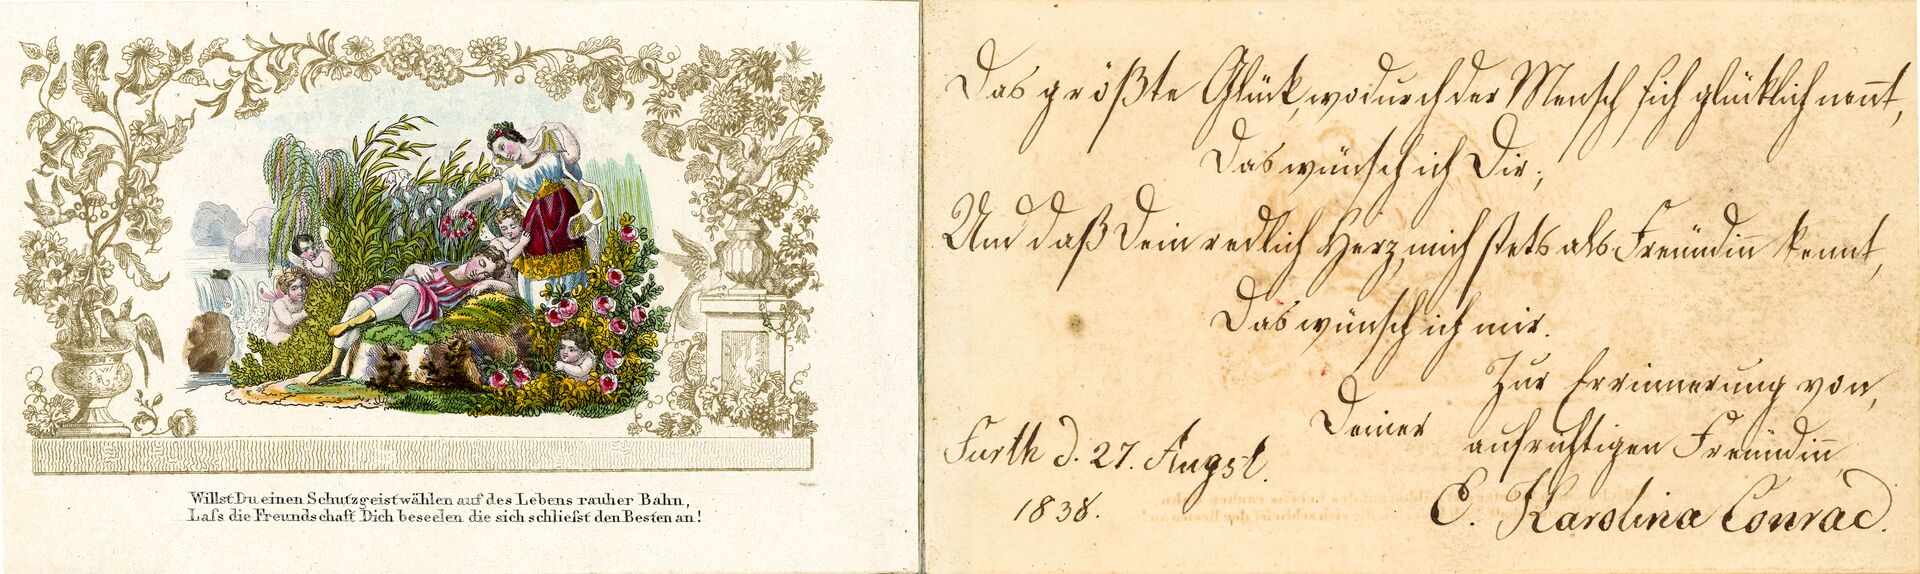 Willst Du einen Schutzgeist wählen auf des Lebens rauher Bahn,
Laſs die Freundschaft Dich beseelen die sich schlieſst den Besten an!
Das größte Glück, wodurch der Mensch sich glücklich nen̅t,
Das wünsch ich Dir;
Und daß Dein redlich Herz, mich stets als Freündin̅ kennt,
Das wünsch ich mir.
Zur Errinnerung von,
Deiner aufrichtigen Freündin̅
Furth d. 27. Augst.
1838.
E. Karolina Conrad.